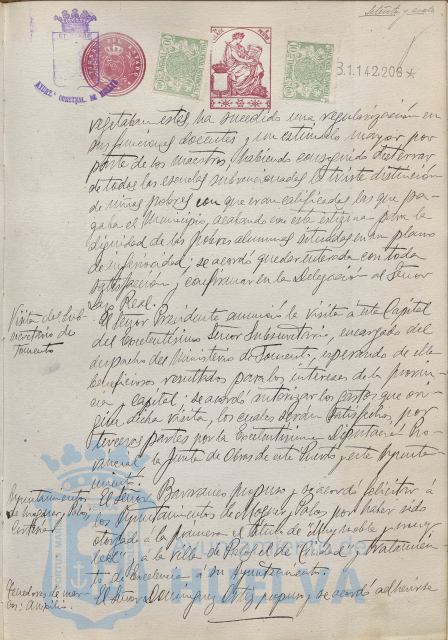 Setenta y siete
AYUNT. CONSTNAL. DE HUELVA
3.1.142.206*
vegetaban estas ha sucedido una regularización en
sus funciones docentes y un estímulo mayor por
parte de los maestros, habiendo conseguido desterrar
de todas las escuelas subvencionadas la triste distinción
de niños pobres con que eran calificados los que pa-
gaba el Municipio, acabando con este estigma para la
dignidad de los pobres alumnos situados en un plano
de inferioridad; se acordó quedar enterada con toda
satisfacción y confirmar en la Delegación al Señor
Real.
Visita del Sub-
secretario de
Fomento
El Señor Presidente anunció la visita a esta Capital
del Excelentísimo Señor Subsecretario, encargado del
despacho del Ministerio de Fomento, esperando de ella
beneficiosos resultados para los intereses de la provin-
cia y capital; se acordó autorizar los gastos que ori-
gine dicha visita, los cuales serán satisfechos, por
terceras partes por la Excelentísima Diputación Pro-
vincial, la Junta de Obras de este Puerto y este Ayunta-
miento.
Ayuntamientos
de Moguer, Palos
El Señor propuso y se acordó felicitar á
los Ayuntamientos de Moguer y Palos por haber sido
otorgado á la primera el título de Muy noble y muy
leal y á la villa de Palos el de Ciudad y tratamien-
to de Excelencia á su Ayuntamiento.
El Señor Domínguez Ortiz propuso y se acordó adherirse
Ayuntamiento de
HUELVA